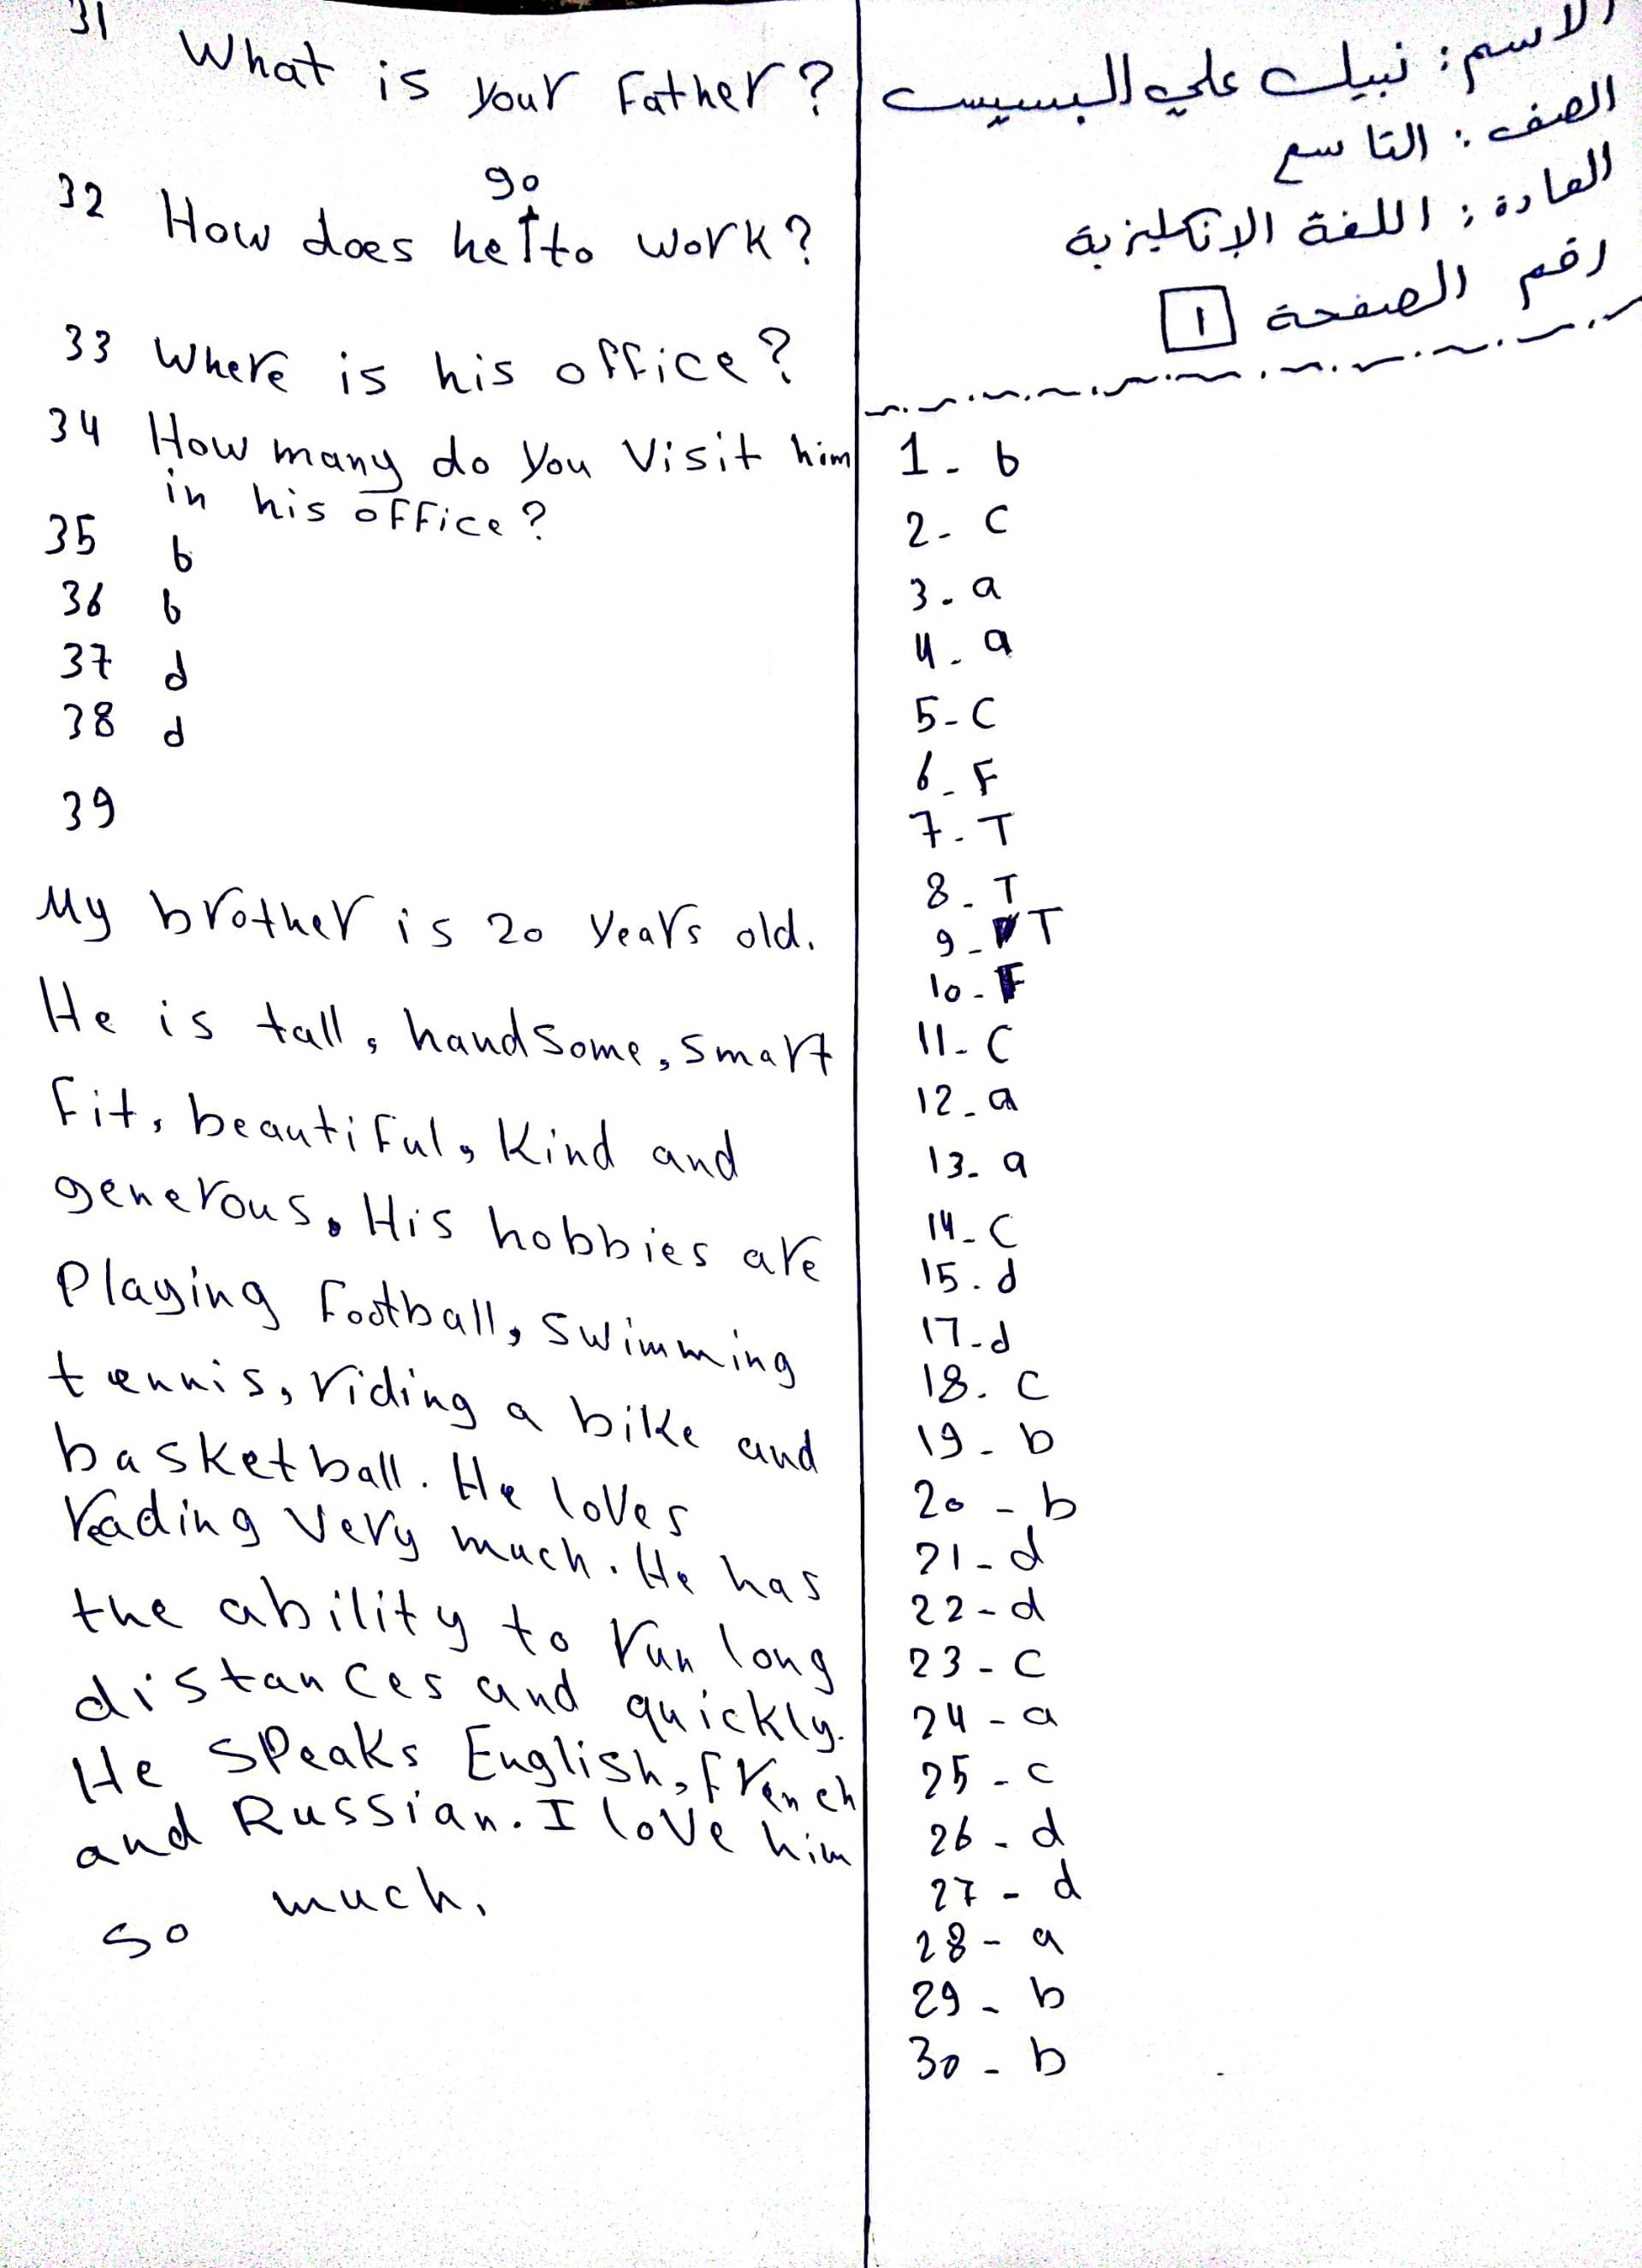 الاسم: نبيل علي البسيس
الصف: التاسع
المادة: اللغة الإنكليزية
رقم الصفحة 1
1- b
2- c
3- a
4- a
5- c
6- F
7- T
8- T
9- T
10- F
11- c
12- a
13- a
14- c
15- d
17- d
18- c
19- b
20 - b
21 - d
22 - d
23 - c
24 - a
25 - c
26 - d
27 - d
28 - a
29 - b
30 - b
31 What is your Father?
go
32 How does he to work?
33 Where is his office?
34 How many do you visit him
in his office?
35 b
36 b
37 d
38 d
39
My brother is 20 years old.
He is tall, handsome, smart
fit, beautiful, kind and
generous. His hobbies are
playing football, swimming
tennis, riding a bike and
basketball. He loves
reading very much. He has
the ability to run long
distances and quickly.
He speaks English, french
and Russian. I love him
so much.